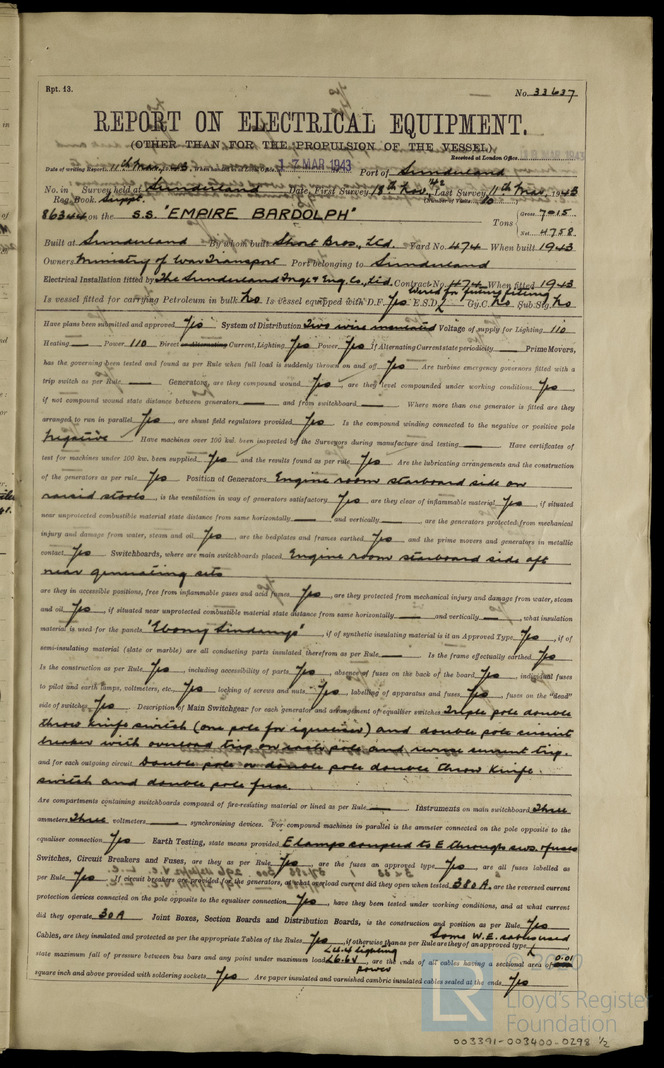 Rpt. 13.
No. 33637
REPORT ON ELECTRICAL EQUIPMENT.
(OTHER THAN FOR THE PROPULSION OF THE VESSEL)
Received at London Office
Date of writing Report 11th Mar. 43. When handed in at Local Office 17 MAR 1943 Port of Sunderland
No. in Survey held at Sunderland Date, First Survey 18th Nov. 42 Last Survey 11th Mar. 1943
Reg. Book. Suppt. (Number of Visits 10)
86344 on the S.S. "EMPIRE BARDOLPH" Tons Gross 7015 Net 4758
Built at Sunderland By whom built Short Bros., Ltd. Yard No. 474 When built 1943
Owners Ministry of War Transport Port belonging to Sunderland
Electrical Installation fitted by The Sunderland Forge & Eng. Co., Ltd. Contract No. 474 When fitted 1943
Wired for future fitting
Is vessel fitted for carrying Petroleum in bulk No Is vessel equipped with D.F. Yes E.S.D. Gy.C. No Sub.Sig. No
Have plans been submitted and approved Yes System of Distribution Two wire insulated Voltage of supply for Lighting 110
Heating — Power 110 Direct or Alternating Current, Lighting Yes Power Yes If Alternating Current state periodicity — Prime Movers,
has the governing been tested and found as per Rule when full load is suddenly thrown on and off Yes Are turbine emergency governors fitted with a
trip switch as per Rule — Generators, are they compound wound Yes, are they level compounded under working conditions Yes,
if not compound wound state distance between generators — and from switchboard — Where more than one generator is fitted are they
arranged to run in parallel Yes, are shunt field regulators provided Yes Is the compound winding connected to the negative or positive pole
Negative Have machines over 100 kw. been inspected by the Surveyors during manufacture and testing — Have certificates of
test for machines under 100 kw. been supplied Yes and the results found as per rule Yes Are the lubricating arrangements and the construction
of the generators as per rule Yes Position of Generators Engine room starboard side on
raised stools, is the ventilation in way of generators satisfactory Yes are they clear of inflammable material Yes, if situated
near unprotected combustible material state distance from same horizontally — and vertically —, are the generators protected from mechanical
injury and damage from water, steam and oil Yes, are the bedplates and frames earthed Yes and the prime movers and generators in metallic
contact Yes Switchboards, where are main switchboards placed Engine room starboard side aft
near generating sets
are they in accessible positions, free from inflammable gases and acid fumes Yes, are they protected from mechanical injury and damage from water, steam
and oil Yes, if situated near unprotected combustible material state distance from same horizontally — and vertically —, what insulation
material is used for the panels "Ebony Sindanyo", if of synthetic insulating material is it an Approved Type Yes, if of
semi-insulating material (slate or marble) are all conducting parts insulated therefrom as per Rule — Is the frame effectually earthed Yes
Is the construction as per Rule Yes, including accessibility of parts Yes, absence of fuses on the back of the board Yes, individual fuses
to pilot and earth lamps, voltmeters, etc. Yes locking of screws and nuts Yes, labelling of apparatus and fuses Yes, fuses on the "dead"
side of switches Yes Description of Main Switchgear for each generator and arrangement of equaliser switches Triple pole double
throw knife switch (one pole for equaliser) and double pole circuit
breaker with overload trip on each pole and reverse current trip.
and for each outgoing circuit Double pole or double pole double throw knife
switch and double pole fuse
Are compartments containing switchboards composed of fire-resisting material or lined as per Rule — Instruments on main switchboard Three
ammeters Three voltmeters — synchronising devices. For compound machines in parallel is the ammeter connected on the pole opposite to the
equaliser connection Yes Earth Testing, state means provided E lamps coupled to E through sws. & fuses
Switches, Circuit Breakers and Fuses, are they as per Rule Yes, are the fuses an approved type Yes, are all fuses labelled as
per Rule Yes If circuit breakers are provided for the generators, at what overload current did they open when tested 380 A, are the reversed current
protection devices connected on the pole opposite to the equaliser connection Yes, have they been tested under working conditions, and at what current
did they operate 30 A Joint Boxes, Section Boards and Distribution Boards, is the construction and position as per Rule Yes
Some W.E. cables used
Cables, are they insulated and protected as per the appropriate Tables of the Rules Yes, if otherwise than as per Rule are they of an approved type
lighting
state maximum fall of pressure between bus bars and any point under maximum load 6.6v power, are the ends of all cables having a sectional area of 0.01
square inch and above provided with soldering sockets Yes Are paper insulated and varnished cambric insulated cables sealed at the ends Yes
© 2020
LR
Lloyd's Register
Foundation
003391-003400-0298 1/2